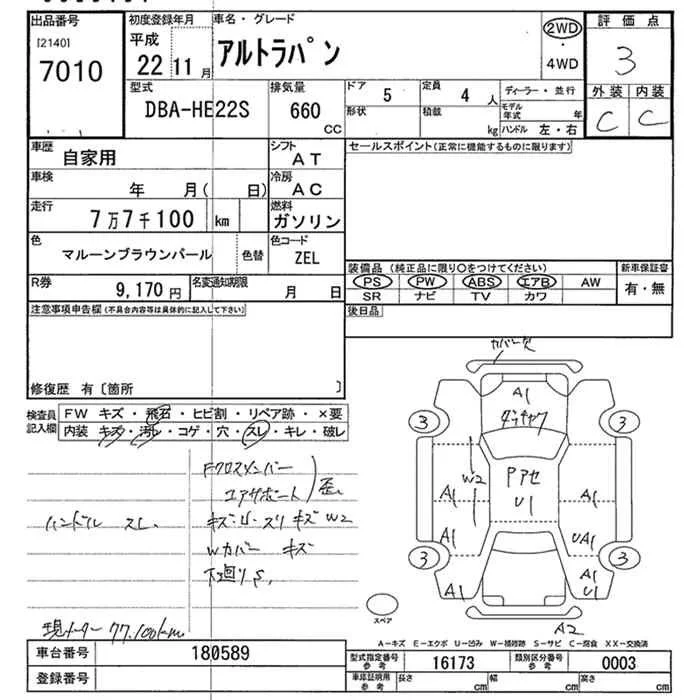 出品番号 初度登録年月 車名・グレード 評価点
[2140] 平成 2WD
7010 22 11月 アルトラパン ・ 3
4WD
型式 排気量 ドア 5 定員 4人 ディーラー・並行 外装 内装
DBA-HE22S 660 形状 積載 モデル年式 年 C C
CC kg ハンドル 左・右
車歴 自家用 シフト AT セールスポイント(正常に機能するものに限ります)
車検 年 月( 日) 冷房 AC
走行 7万7千100 km 燃料 ガソリン
色 マルーンブラウンパール 色替 色コード ZEL
装備品(純正品に限り○をつけてください) 新車保証書
R券 9,170円 名変通知期限 月 日 PS PW ABS エアB AW 有・無
SR ナビ TV カワ
注意事項申告欄(不具合内容等は具体的に記入して下さい) 後日品
修復歴 有〔箇所 〕
検査員記入欄 FW キズ・飛石・ヒビ割・リペア跡・×要
内装 キズ・汚レ・コゲ・穴・スレ・キレ・破レ
Fクロスメンバー
エアサポート 歪
ハンドル スレ キズ・凹 スリキズ W2
Wカバー キズ
下廻りS
現メーター 77,100km
カバー欠
A1
3 3
W2 Pアセ
U1
A1 A1
A1 UA1
3 3
A1 A1
U1
スペア A2
A-キズ E-エクボ U-凹み W-補修跡 S-サビ C-腐食 XX-交換済
車台番号 180589 型式指定番号 参考 16173 類別区分番号 参考 0003
登録番号 車車証明用 参考 長さ cm 幅 cm 高さ cm